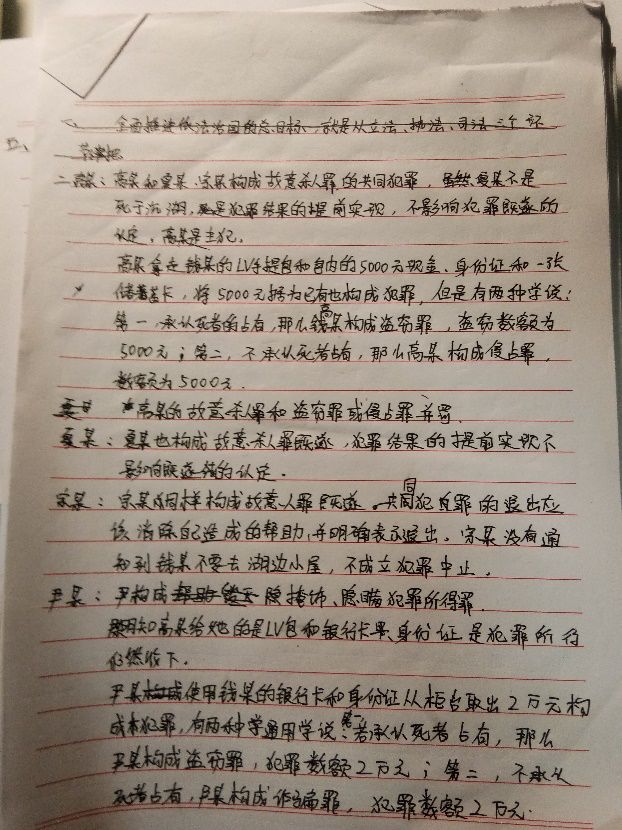 全面推进依法治国的总目标，就是从立法、执法、司法三个环
节来把
二、高某：高某和夏某、宗某构成故意杀人罪的共同犯罪，虽然夏某不是
死于沉湖，是犯罪结果的提前实现，不影响犯罪既遂的
认定，高某是主犯。
高某拿走钱某的LV手提包和包内的5000元现金、身份证和一张
储蓄卡，将5000元据为已有也构成犯罪，但是有两种学说：
第一，承认死者的占有，那么高某构成盗窃罪，盗窃数额为
5000元；第二，不承认死者占有，那么高某构成侵占罪，
数额为5000元
夏某 高某的故意杀人罪和盗窃罪或侵占罪并罚.
夏某：夏某也构成故意杀人罪既遂，犯罪结果的提前实现不
影响既遂的认定.
宗某：宗某同样构成故意人罪既遂。共同犯罪的退出应
该消除自己造成的帮助，并明确表示退出. 宗某没有通
知到钱某不要去湖边小屋，不成立犯罪中止.
尹某：尹构成掩饰、隐瞒犯罪所得罪.
明知高某给她的是LV包和银行卡、身份证是犯罪所得
仍然收下.
尹某构成使用钱某的银行卡和身份证从柜台取出2万元构
成犯罪，有两种学说：第一，若承认死者占有，那么
尹某构成盗窃罪，犯罪数额2万元；第二，不承认
死者占有，尹某构成诈骗罪，犯罪数额2万元.